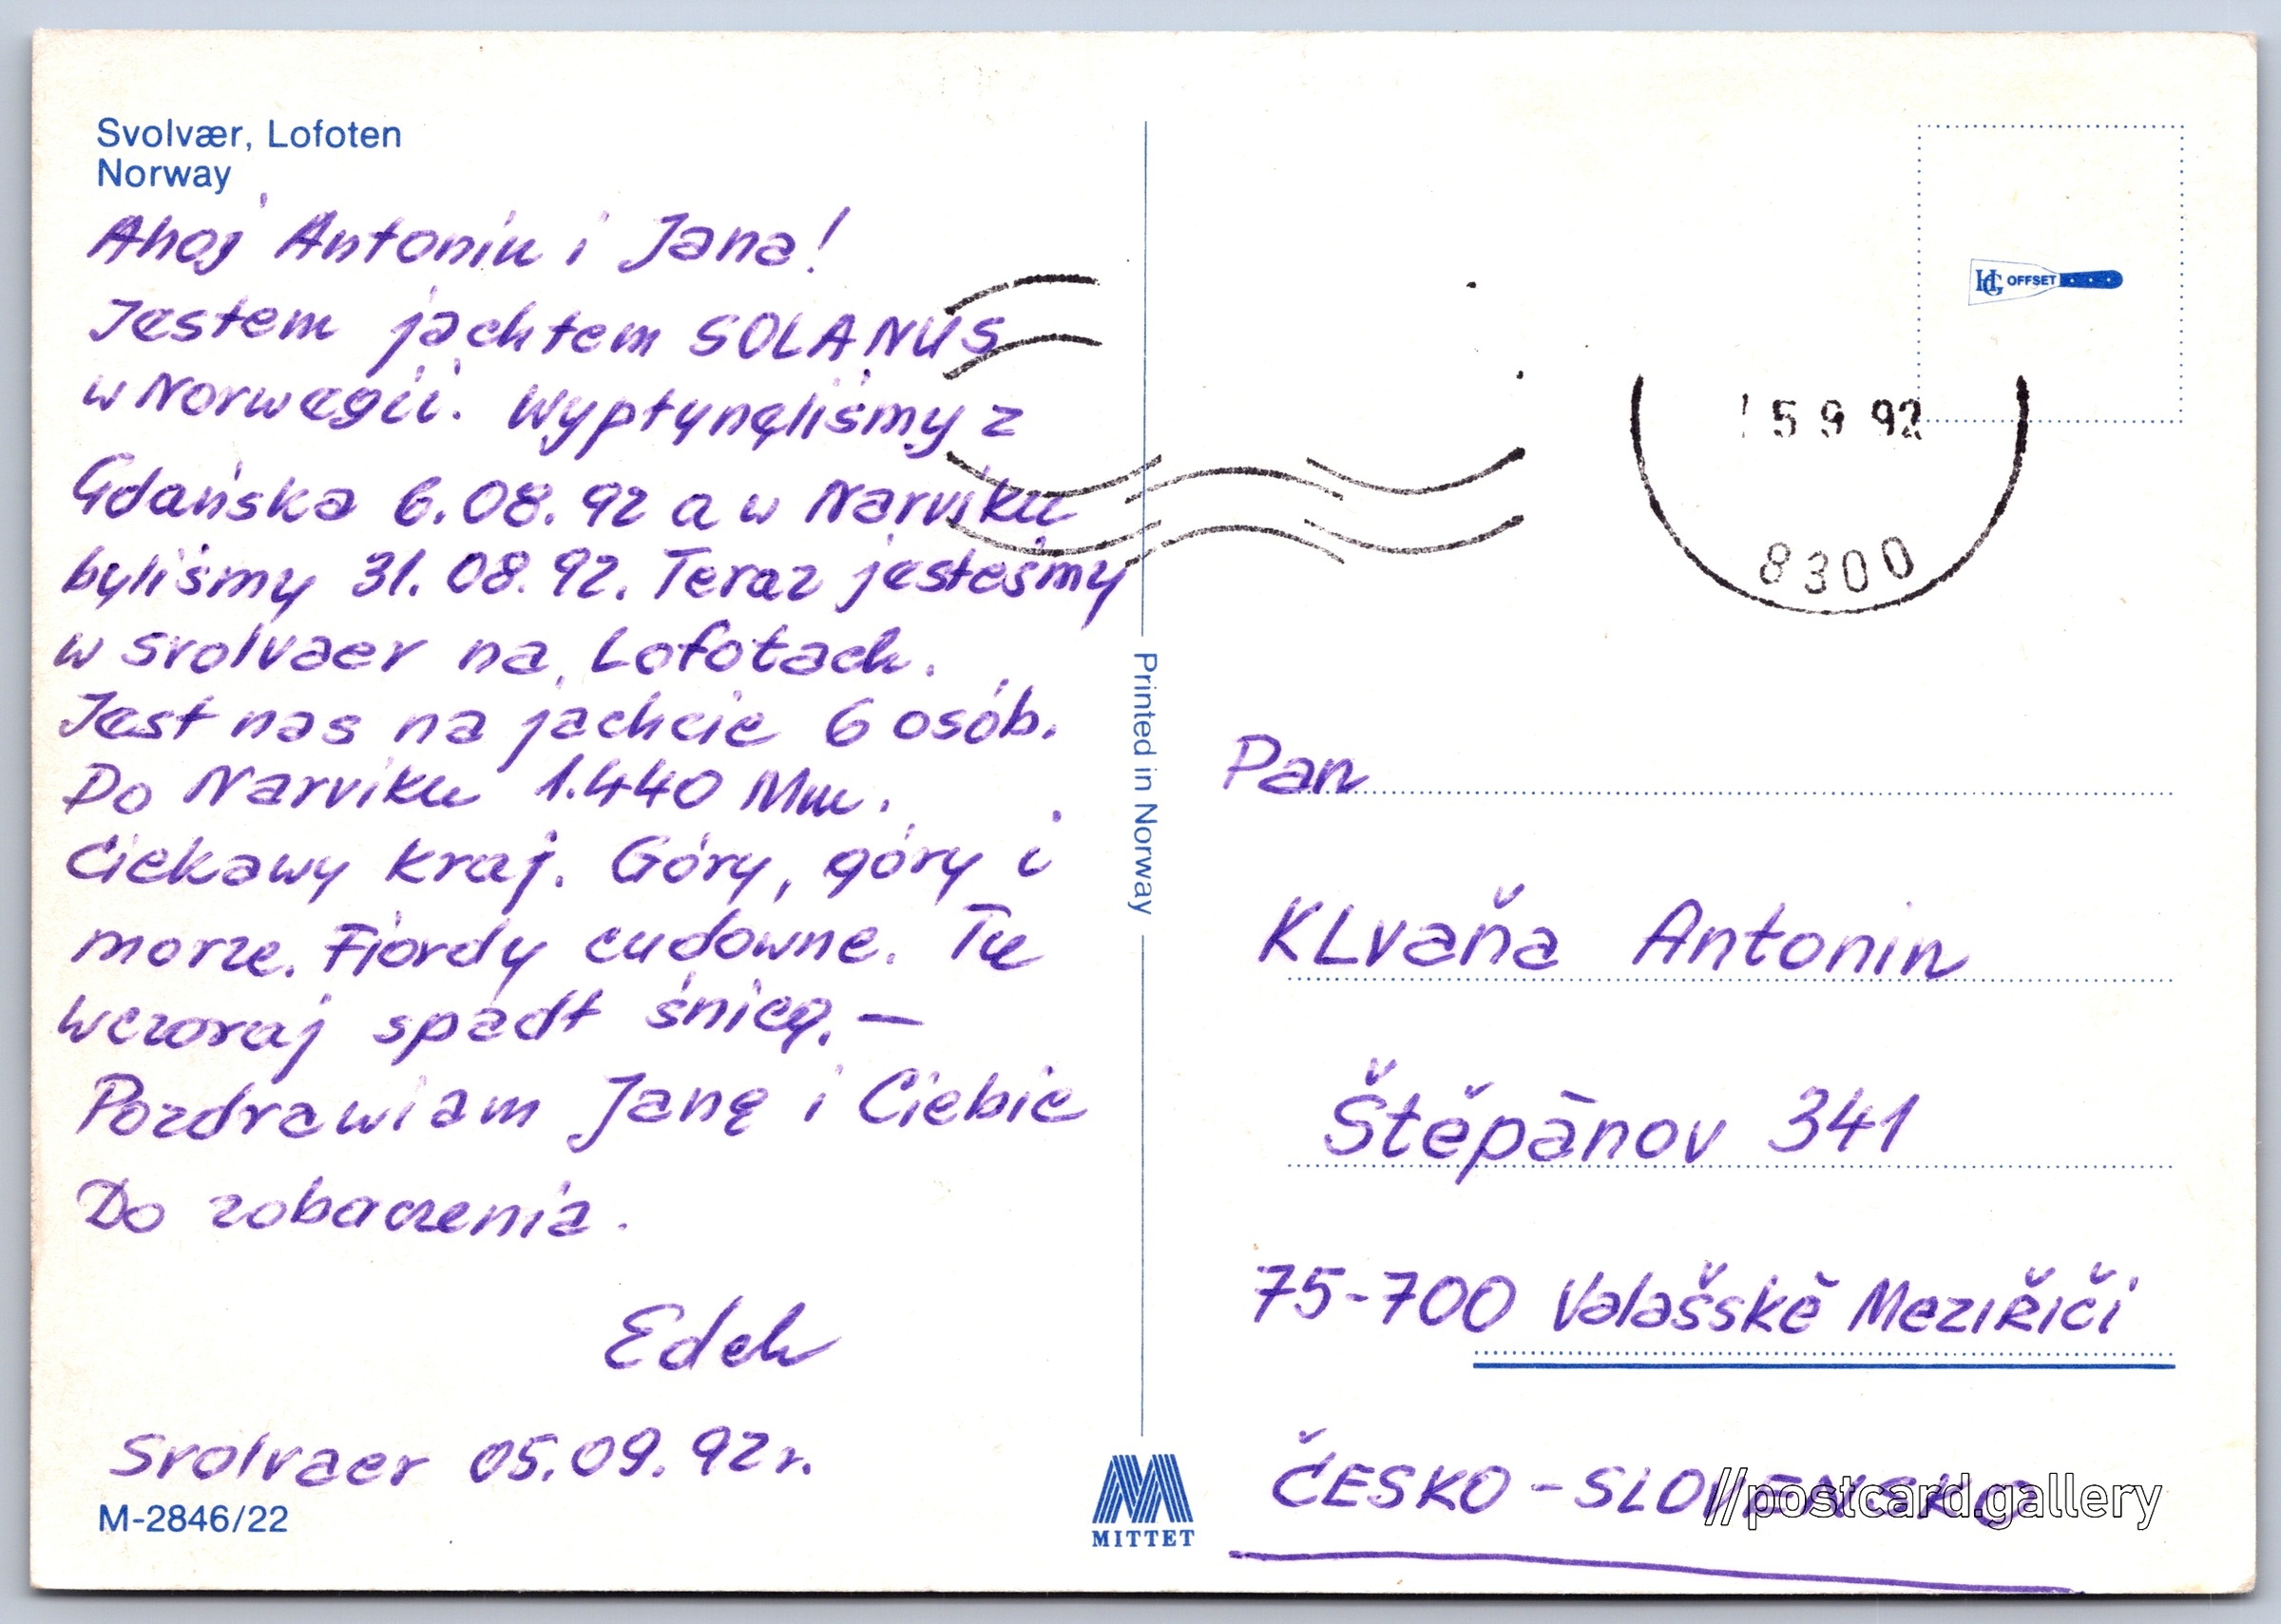 Svolvær, Lofoten
Norway
Ahoj Antonin i Jana!
Jestem jachtem SOLANUS
w Norwegii. Wypłynęliśmy z
Gdańska 6.08.92 a w Narviku
byliśmy 31.08.92. Teraz jesteśmy
w Svolvaer na Lofotach.
Jest nas na jachcie 6 osób.
Do Narviku 1.440 Mm.
Ciekawy kraj. Góry, góry i
morze. Fiordy cudowne. Tu
wczoraj spadł śnieg. —
Pozdrawiam Janę i Ciebie
Do zobaczenia.
Edek
Svolvaer 05.09.92r.
M-2846/22
Printed in Norway
MITTET
HG OFFSET
5 9 92
8300
Pan
KLvaňa Antonin
Štěpānov 341
75-700 Valašskě Meziřiči
ČESKO-SLOVENSKO
//postcard.gallery